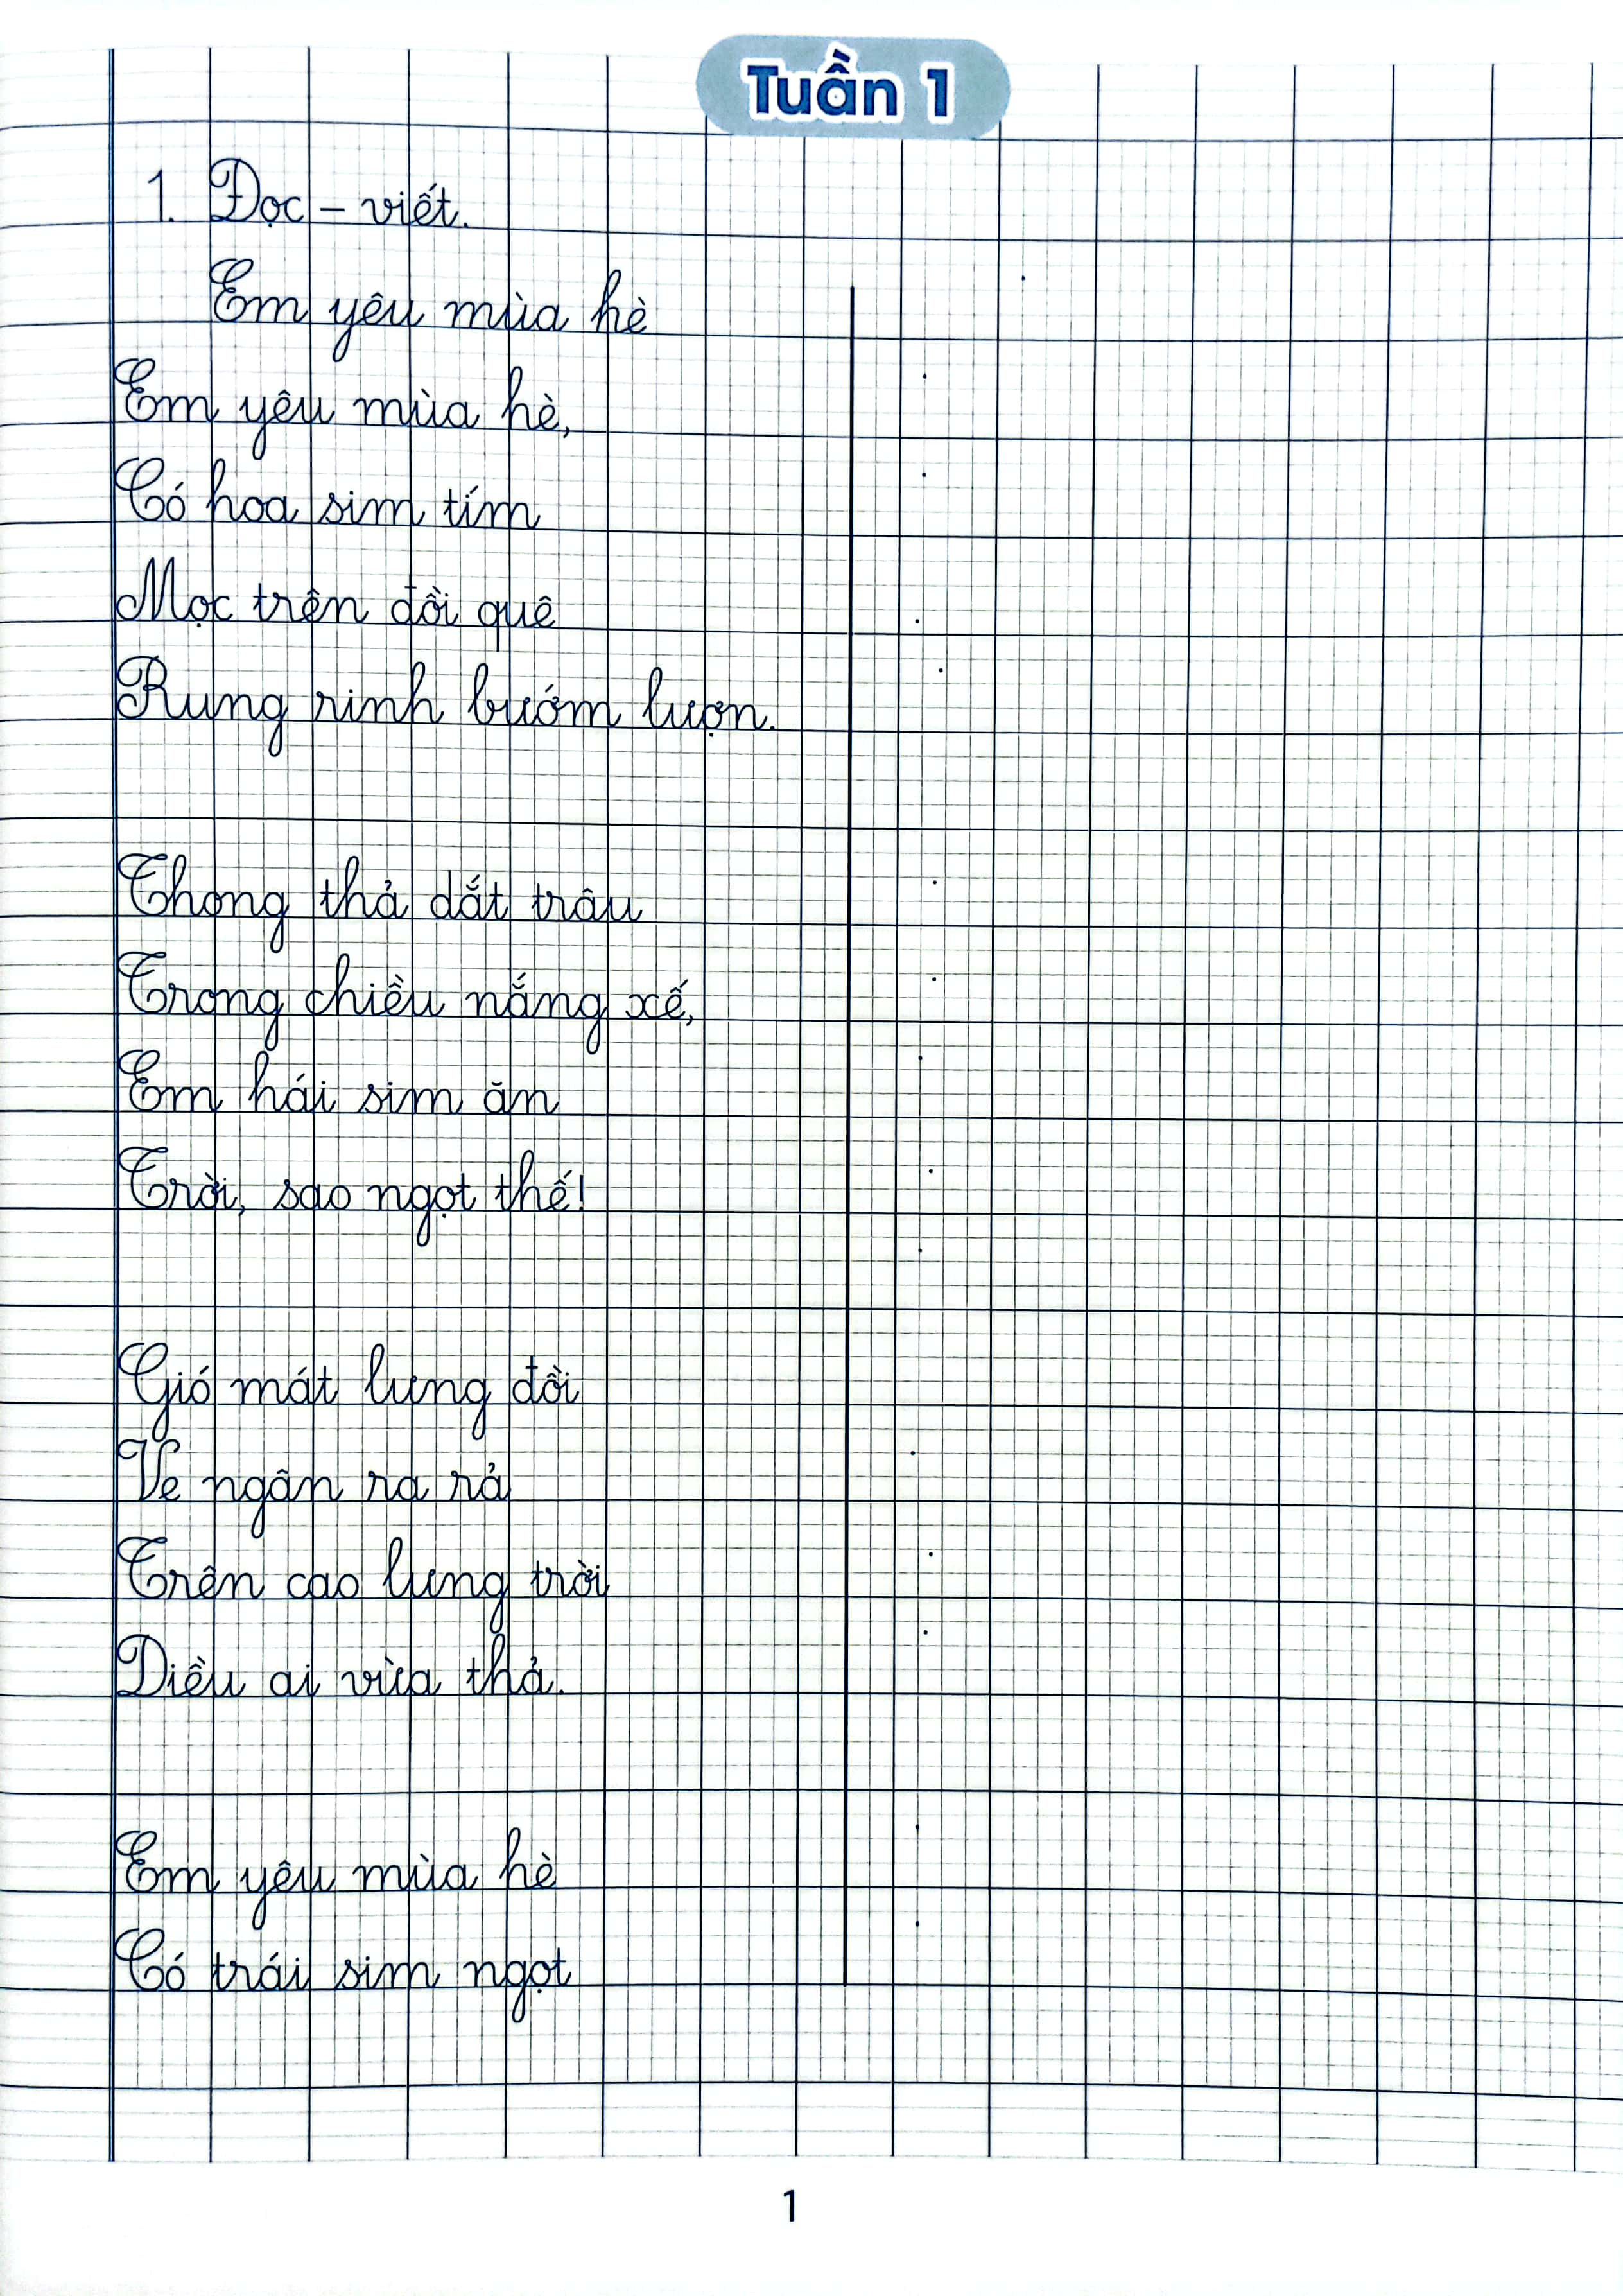 Tuần 1
1. Đọc – viết.
Em yêu mùa hè
Em yêu mùa hè,
Có hoa sim tím
Mọc trên đồi quê
Rung rinh bướm lượn.
Thong thả dắt trâu
Trong chiều nắng xế,
Em hái sim ăn
Trời, sao ngọt thế!
Gió mát lưng đồi
Ve ngân ra rả
Trên cao lưng trời
Diều ai vừa thả.
Em yêu mùa hè
Có trái sim ngọt
1